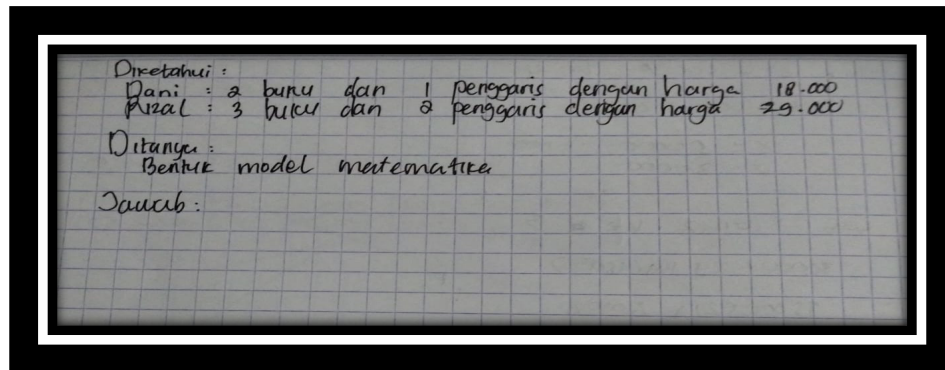 Diketahui :
Dani : 2 buku dan 1 penggaris dengan harga 18.000
Rizal : 3 buku dan 2 penggaris dengan harga 29.000
Ditanya :
Bentuk model matematika
Jawab :